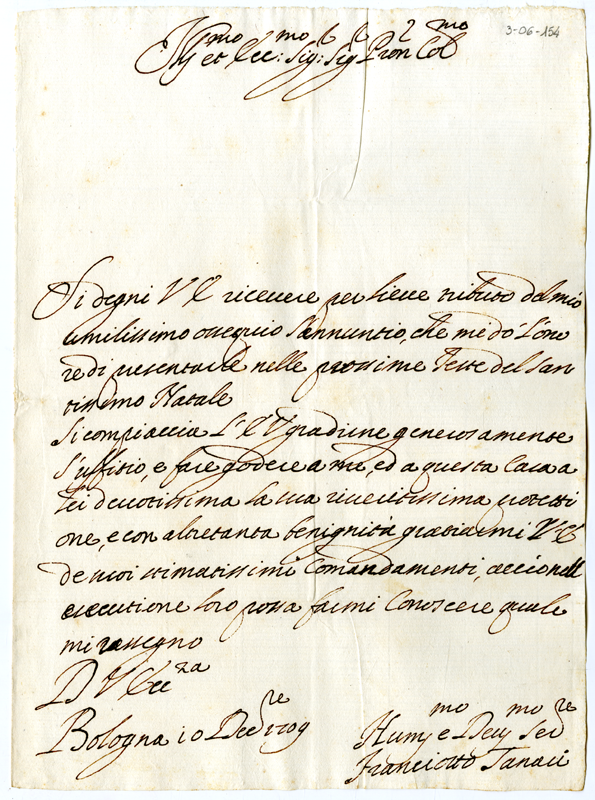 3-06-154
Ill:mo et Ecc:mo Sig:r Sig:r Pron Col:mo
Si degni V E riceuere per lieue tributo del mio
umilissimo ossequio l'annuntio, che me do l'ono
re di presentarle nelle prossime Feste del San
tissimo Natale
Si compiaccia L'E V gradirne generosamente
l'uffitio, e fare godere a me, ed a questa Casa a
Lei deuotissima la sua riueritissima protetti
one, e con altretanta benignità gratiarmi V E
de suoi stimatissimi Comandamenti, accio nell
essecutione loro possa farmi Conoscere quale
mi rassegno
D V Ecc:za
Bologna 10 Decre 1709
Hum:mo e Deu:mo Ser:re
Franciotto Tanari